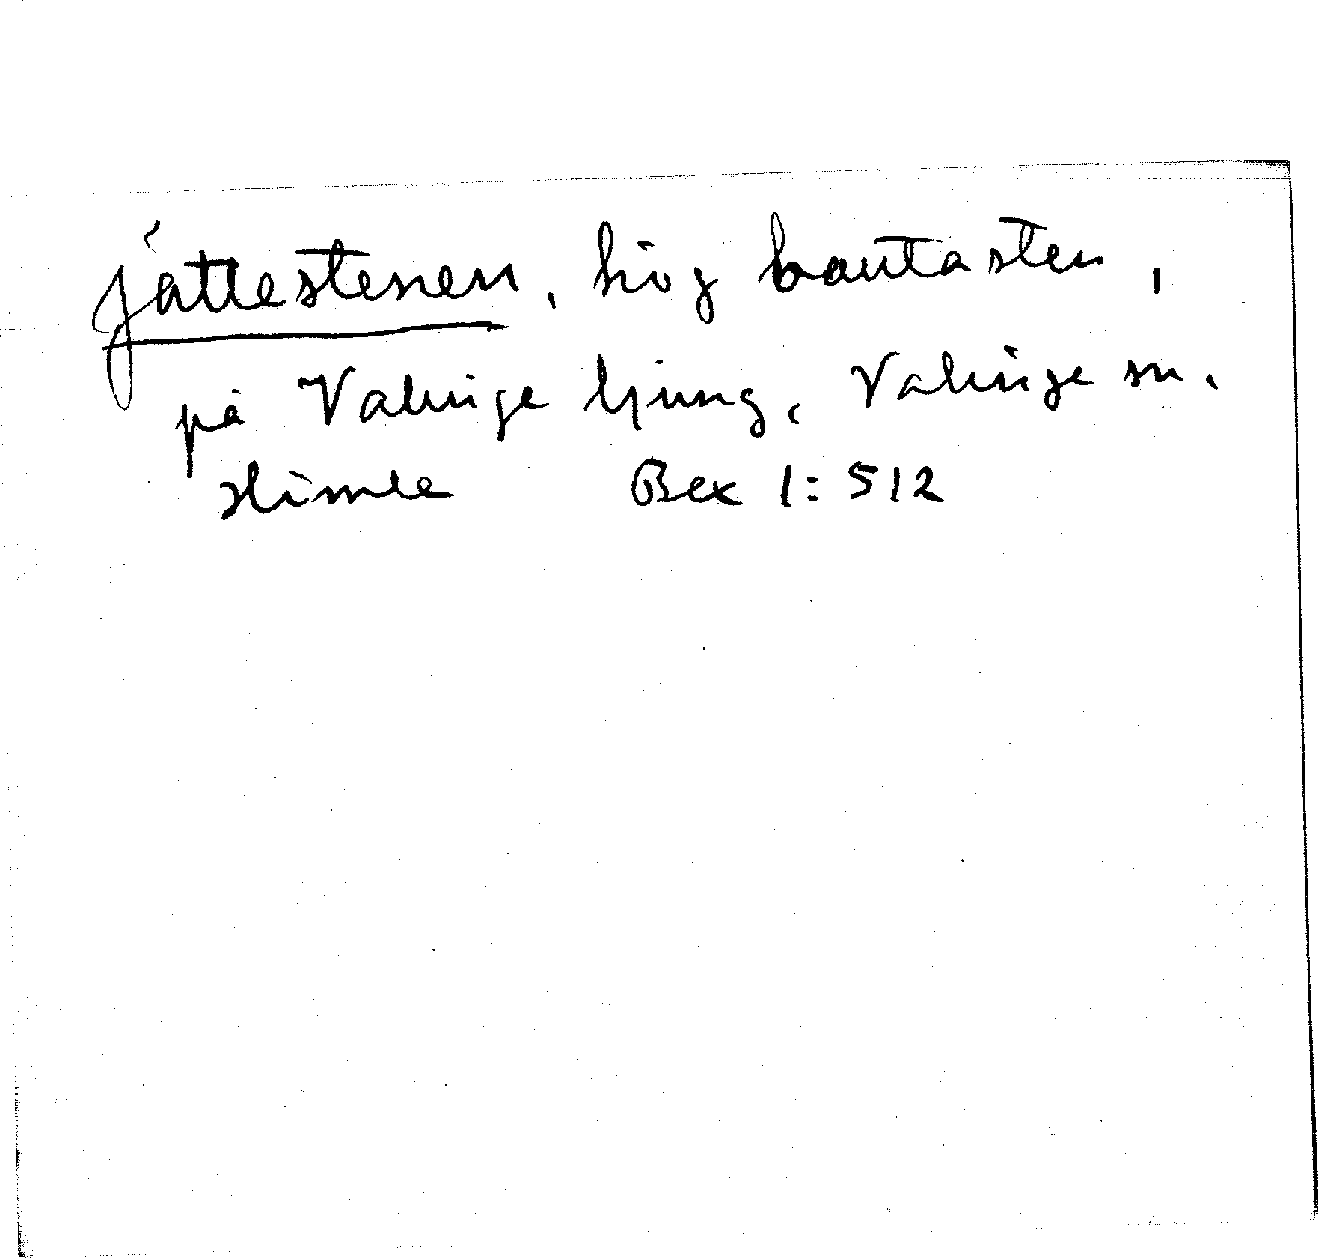 Jättestenen, hög bautasten,
på Valinge ljung, Valinge sn.
Himle Bex 1:512